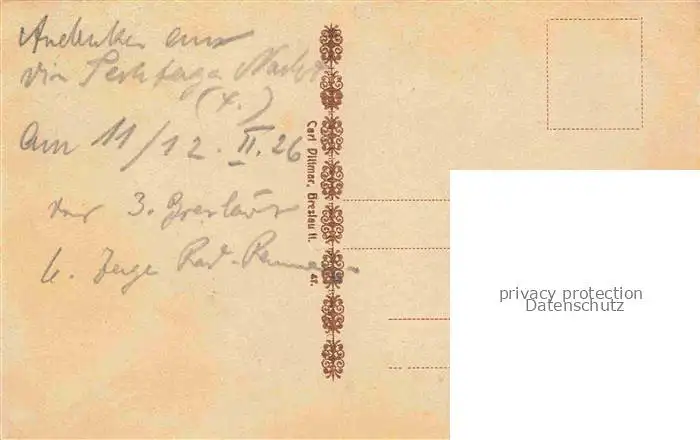 Andenken aus
die Sechstage Nacht
(4.)
am 11/12. II. 26
3. Breslauer
6. Rad-Rennen
Carl Dittmar, Breslau II.
47.
privacy protection
Datenschutz